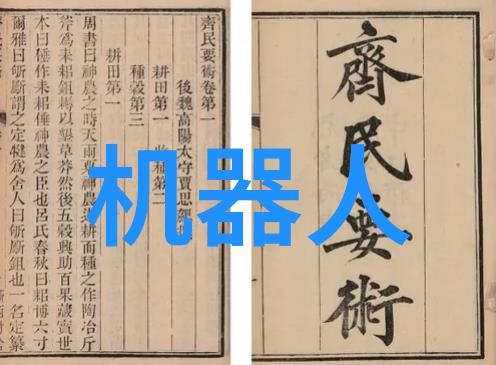 齊民要術卷第一
後魏高陽太守賈思
耕田第一　收種第二
種穀第三
耕田第一
周書曰神農之時天雨粟神農遂耕而種之作陶冶斤
斧為耒耜鉏耨以墾草莽然後五穀興助百果藏實世
本曰倕作耒耜倕神農之臣也呂氏春秋曰耜博六寸
爾雅曰斪斸謂之定犍為舍人曰斪斸鉏也一名定纂
齊民要術
机器人